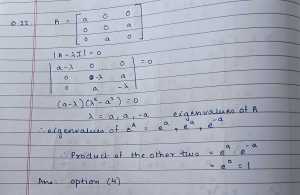 Q.22. A = [ a 0 0
0 0 a
0 a 0 ]
|A - λI| = 0
| a-λ 0 0
0 0-λ a
0 a -λ | = 0
(a-λ)(λ² - a²) = 0
λ = a, a, -a eigenvalues of A
∴ eigenvalues of e^A = e^a, e^a, e^-a
∴ Product of the other two = e^a . e^-a
= e^0 = 1
Ans: option (4)